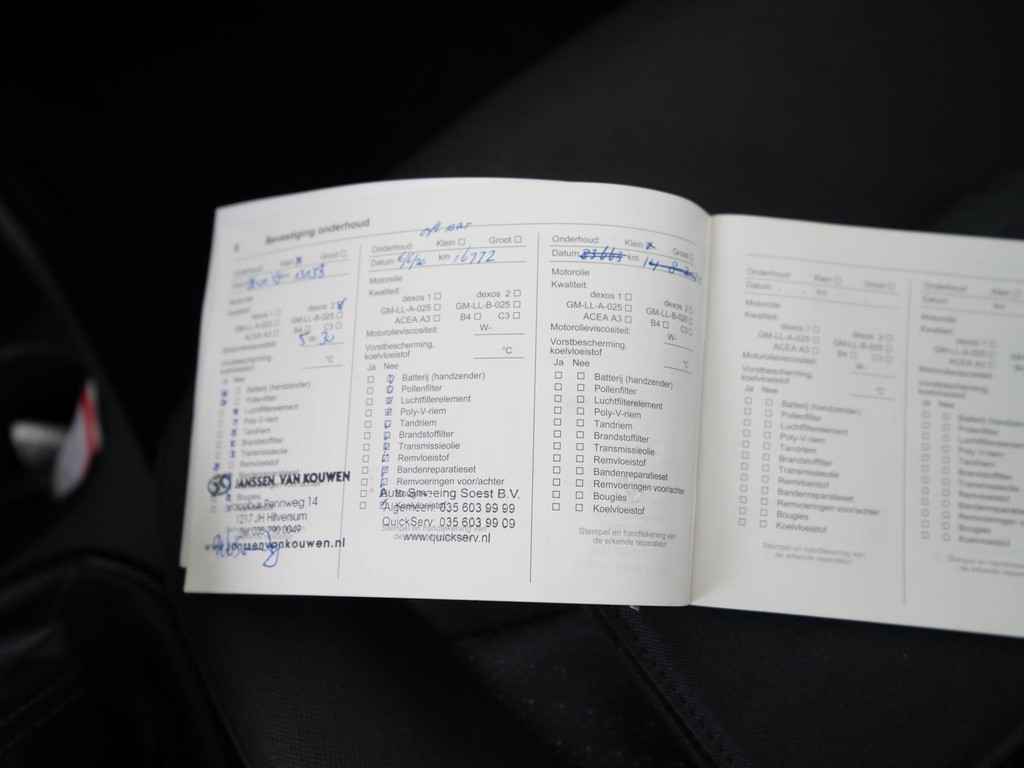 6 Bevestiging onderhoud
Onderhoud: Klein x Groot
Motorolie
Kwaliteit:
dexos 1 dexos 2
GM-LL-A-025 GM-LL-B-025
ACEA A3 B4 C3
Motorolieviscositeit: 5-30
Vorstbescherming,
koelvloeistof °C
Ja Nee
Batterij (handzender)
Pollenfilter
Luchtfilterelement
Poly-V-riem
Tandriem
Brandstoffilter
Transmissieolie
Remvloeistof
JANSSEN VAN KOUWEN
Bougies
Pennweg 14
1217 JH Hilversum
www.janssenvankouwen.nl
Onderhoud: Klein Groot
Datum km 16772
Motorolie
Kwaliteit:
dexos 1 dexos 2
GM-LL-A-025 GM-LL-B-025
ACEA A3 B4 C3
Motorolieviscositeit: W-
Vorstbescherming,
koelvloeistof °C
Ja Nee
Batterij (handzender)
Pollenfilter
Luchtfilterelement
Poly-V-riem
Tandriem
Brandstoffilter
Transmissieolie
Remvloeistof
Bandenreparatieset
Remvoeringen voor/achter
Auto Smeeing Soest B.V.
Algemeen: 035 603 99 99
QuickServ: 035 603 99 09
www.quickserv.nl
Onderhoud: Klein x Groot
Datum 23663 km
Motorolie
Kwaliteit:
dexos 1 dexos 2
GM-LL-A-025 GM-LL-B-025
ACEA A3 B4 C3
Motorolieviscositeit: W-
Vorstbescherming,
koelvloeistof °C
Ja Nee
Batterij (handzender)
Pollenfilter
Luchtfilterelement
Poly-V-riem
Tandriem
Brandstoffilter
Transmissieolie
Remvloeistof
Bandenreparatieset
Remvoeringen voor/achter
Bougies
Koelvloeistof
Stempel en handtekening van
de erkende reparateur
Onderhoud: Klein Groot
Datum km
Motorolie
Kwaliteit:
dexos 1 dexos 2
GM-LL-A-025 GM-LL-B-025
ACEA A3 B4 C3
Motorolieviscositeit: W-
Vorstbescherming,
koelvloeistof °C
Ja Nee
Batterij (handzender)
Pollenfilter
Luchtfilterelement
Poly-V-riem
Tandriem
Brandstoffilter
Transmissieolie
Remvloeistof
Bandenreparatieset
Remvoeringen voor/achter
Bougies
Koelvloeistof
Stempel en handtekening van
de erkende reparateur
Onderhoud: Klein
Datum km
Motorolie
Kwaliteit:
dexos 1
GM-LL-A-025
ACEA A3
Motorolieviscositeit:
Vorstbescherming,
koelvloeistof
Ja Nee
Batterij (handzender)
Pollenfilter
Luchtfilterelement
Poly-V-riem
Tandriem
Brandstoffilter
Transmissieolie
Remvloeistof
Bandenreparatieset
Remvoeringen
Bougies
Koelvloeistof